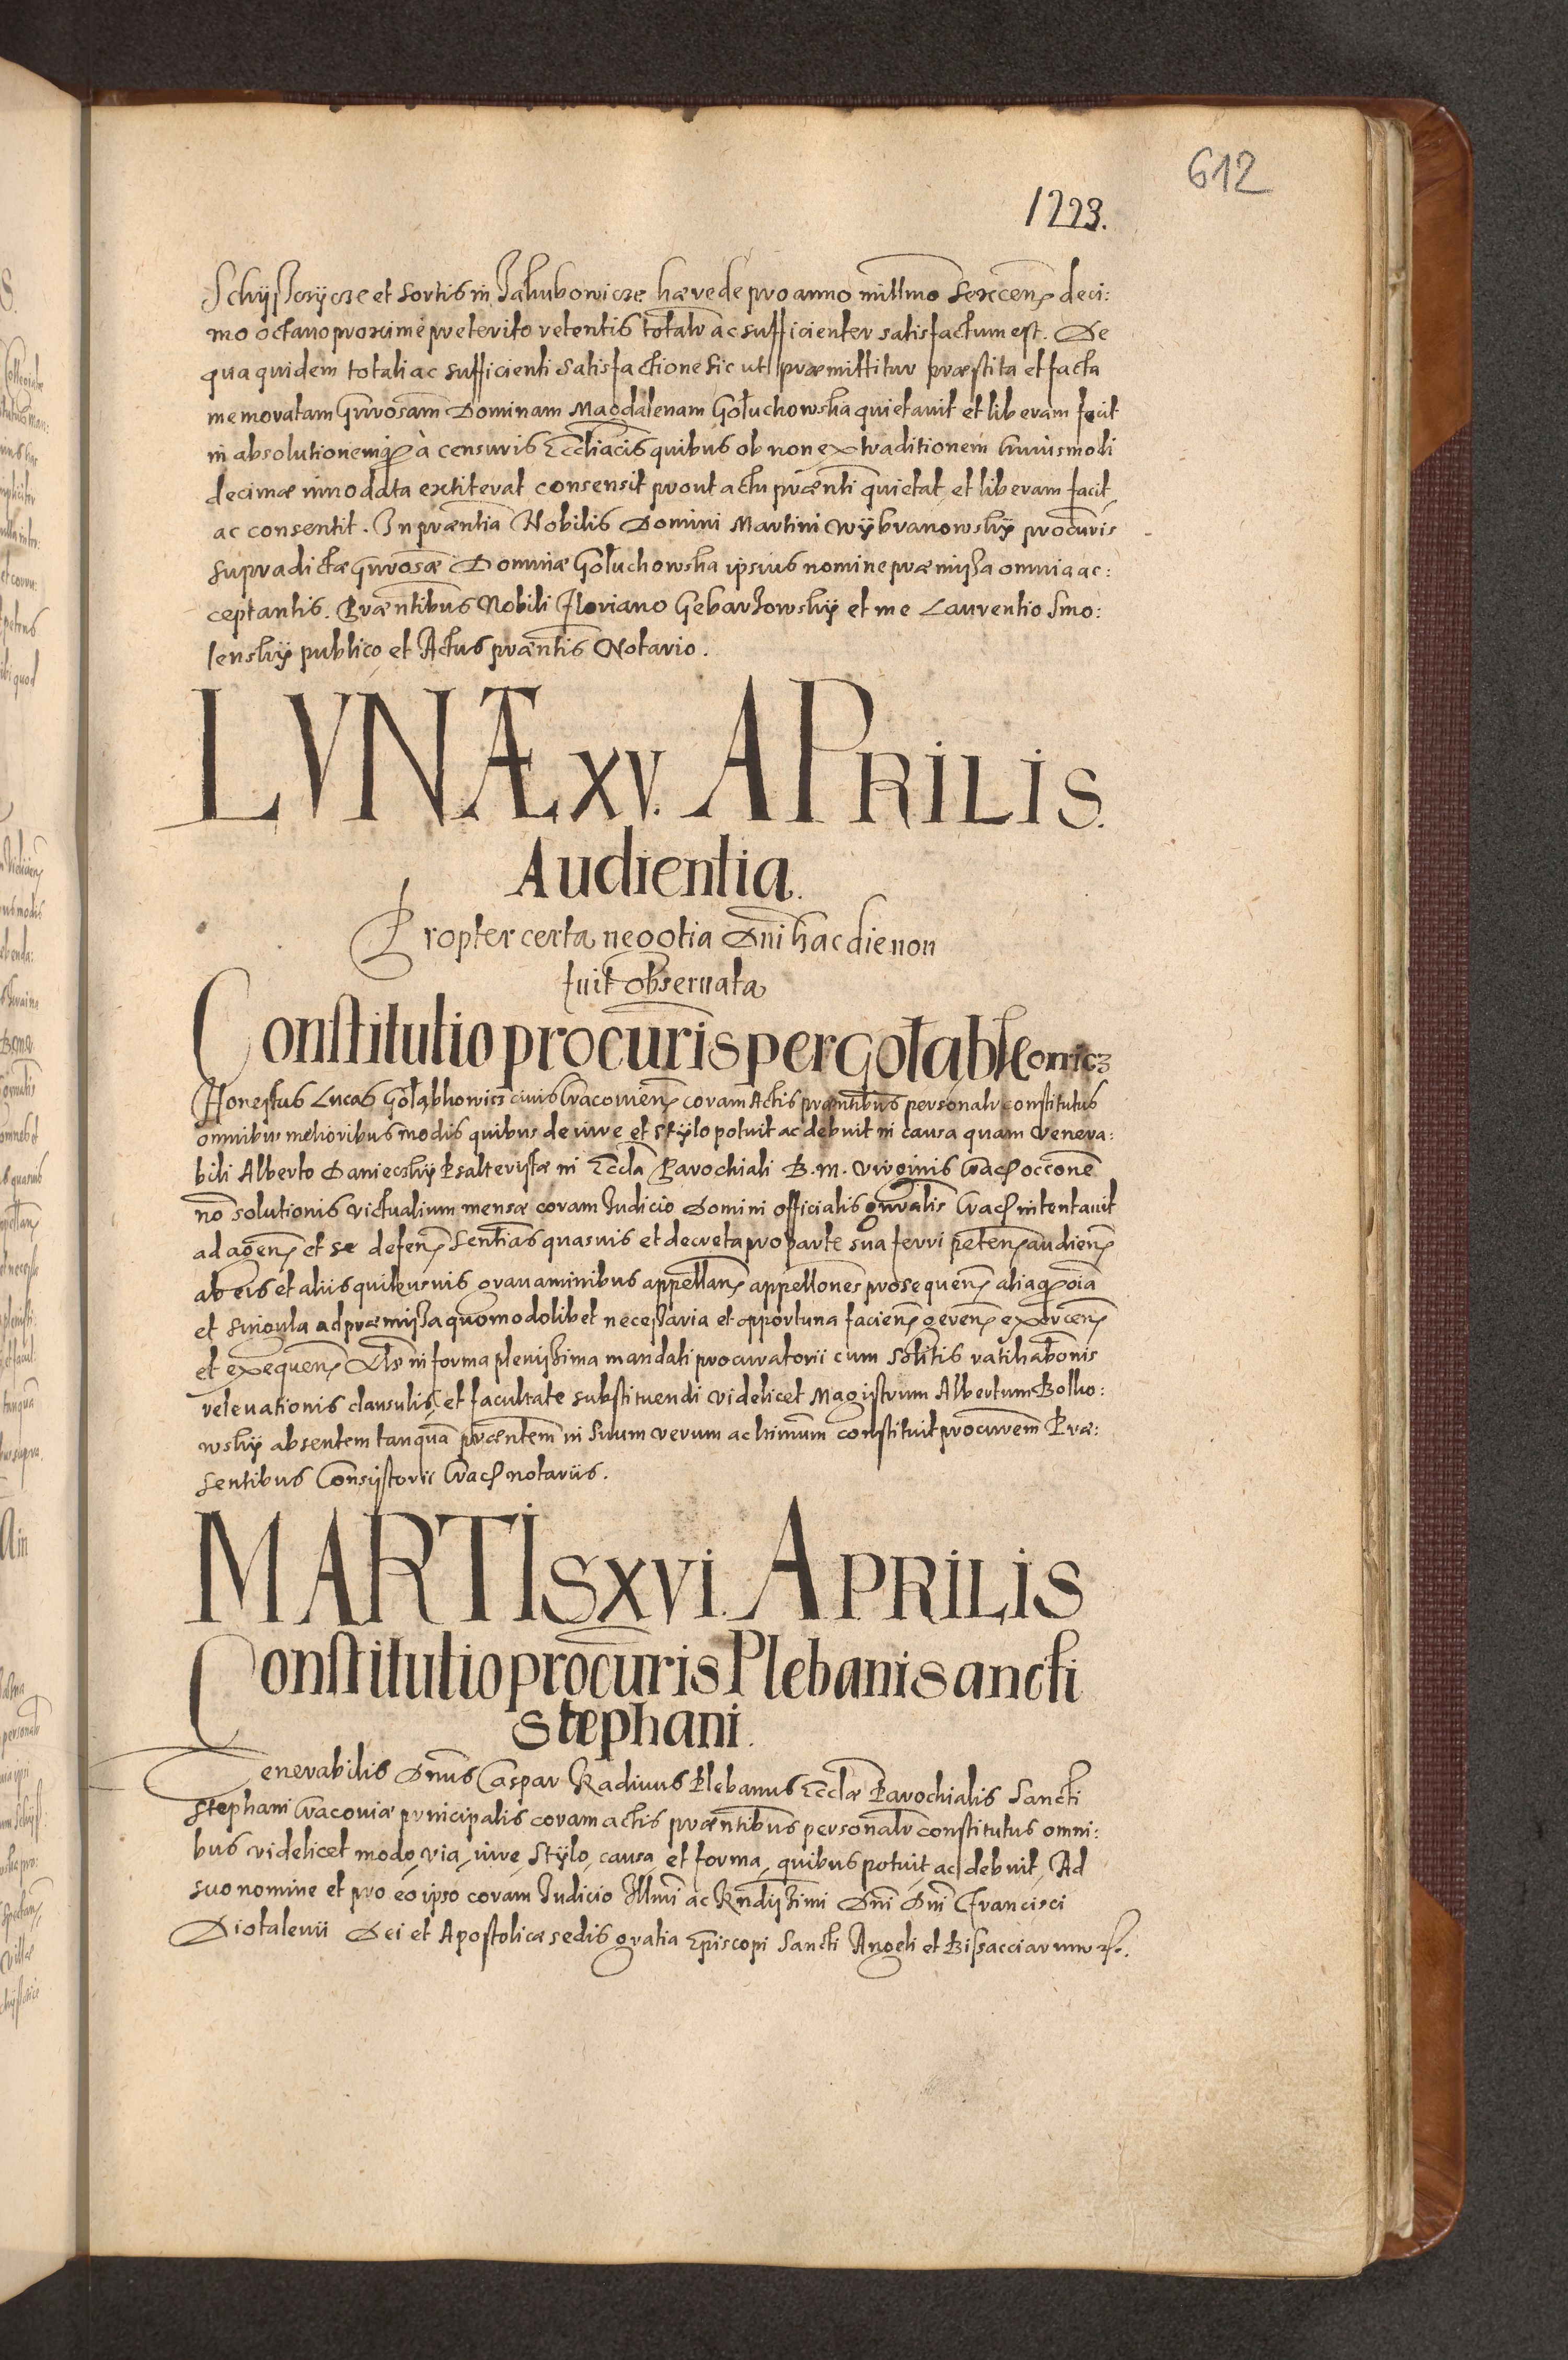 612
1223.
Schÿsczÿcze et sortis in Jakubowicze hærede pro anno millmo sexcen deci:
mo octauo proxime preterito retentis totalr ac sufficienter satisfactum est. De
qua quidem totali ac sufficienti satisfactione sic ut præmittitur præstita et facta
memoratam Gnrosam Dominam Magdalenam Gołuchowska quietauit et liberam fecit
in absolutionemq à censuris Eccliacis quibus ob non extraditionem huiusmodi
decimæ innodata extiterat consensit prout actu præenti quietat et liberam facit
ac consentit. In præntia Nobilis Domini Martini Wÿbranowskÿ procuris
supradictæ Gnrosæ Dominæ Gołuchowska ipsius nomine præmissa omnia ac:
ceptantis. Præntibus Nobili Floriano Gebarzowskÿ et me Laurentio Smo:
lenskÿ publico et Actus præntis Notario.
LVNÆ XV. APRILIS.
Audientia.
Propter certa negotia Dni hac die non
fuit obseruata
Constitutio procuris per Gołąbkowicz
Honestus Lucas Gołąbkowicz ciuis Cracouien coram Actis præntibus personalr constitutus
omnibus melioribus modis quibus de iure et stÿlo potuit ac debuit in causa quam Venera:
bili Alberto Danieczkÿ Psalteristæ in Eccla Parochiali B. M. Virginis Crac occone
no solutionis victualium mensæ coram Iudicio Domini officialis gnralis Crac intentauit
ad agen et se defen Sentias quasuis et decreta pro parte sua ferri peten audien
ab eis et aliis quibusuis grauaminibus appellan appellones prosequen aliaq oia
et singula ad præmissa quomodolibet necessaria et opportuna facien geren exercen
et exequen Als in forma plenissima mandati procuratorii cum solitis ratihabonis
releuationis clausulis, et facultate substituendi videlicet Magistrum Albertum Bolko:
wskÿ absentem tanqua præntem in suum verum ac ltimum constituit procurem Præ:
sentibus Consistorii Crac notariis.
MARTIS XVI. APRILIS
Constitutio procuris Plebani Sancti
Stephani.
Venerabilis Dnus Caspar Kradinus Plebanus Ecclæ Parochialis Sancti
Stephani Cracouiæ principalis coram actis præntibus personalr constitutus omni:
bus videlicet modo, via, iure, stÿlo, causa, et forma, quibus potuit ac debuit, Ad
suo nomine et pro eo ipso coram Iudicio Illmi ac Rndissimi Dni Dni Francisci
Diotaleuii Dei et Apostolicæ sedis gratia Episcopi Sancti Angeli et Bissacciarum